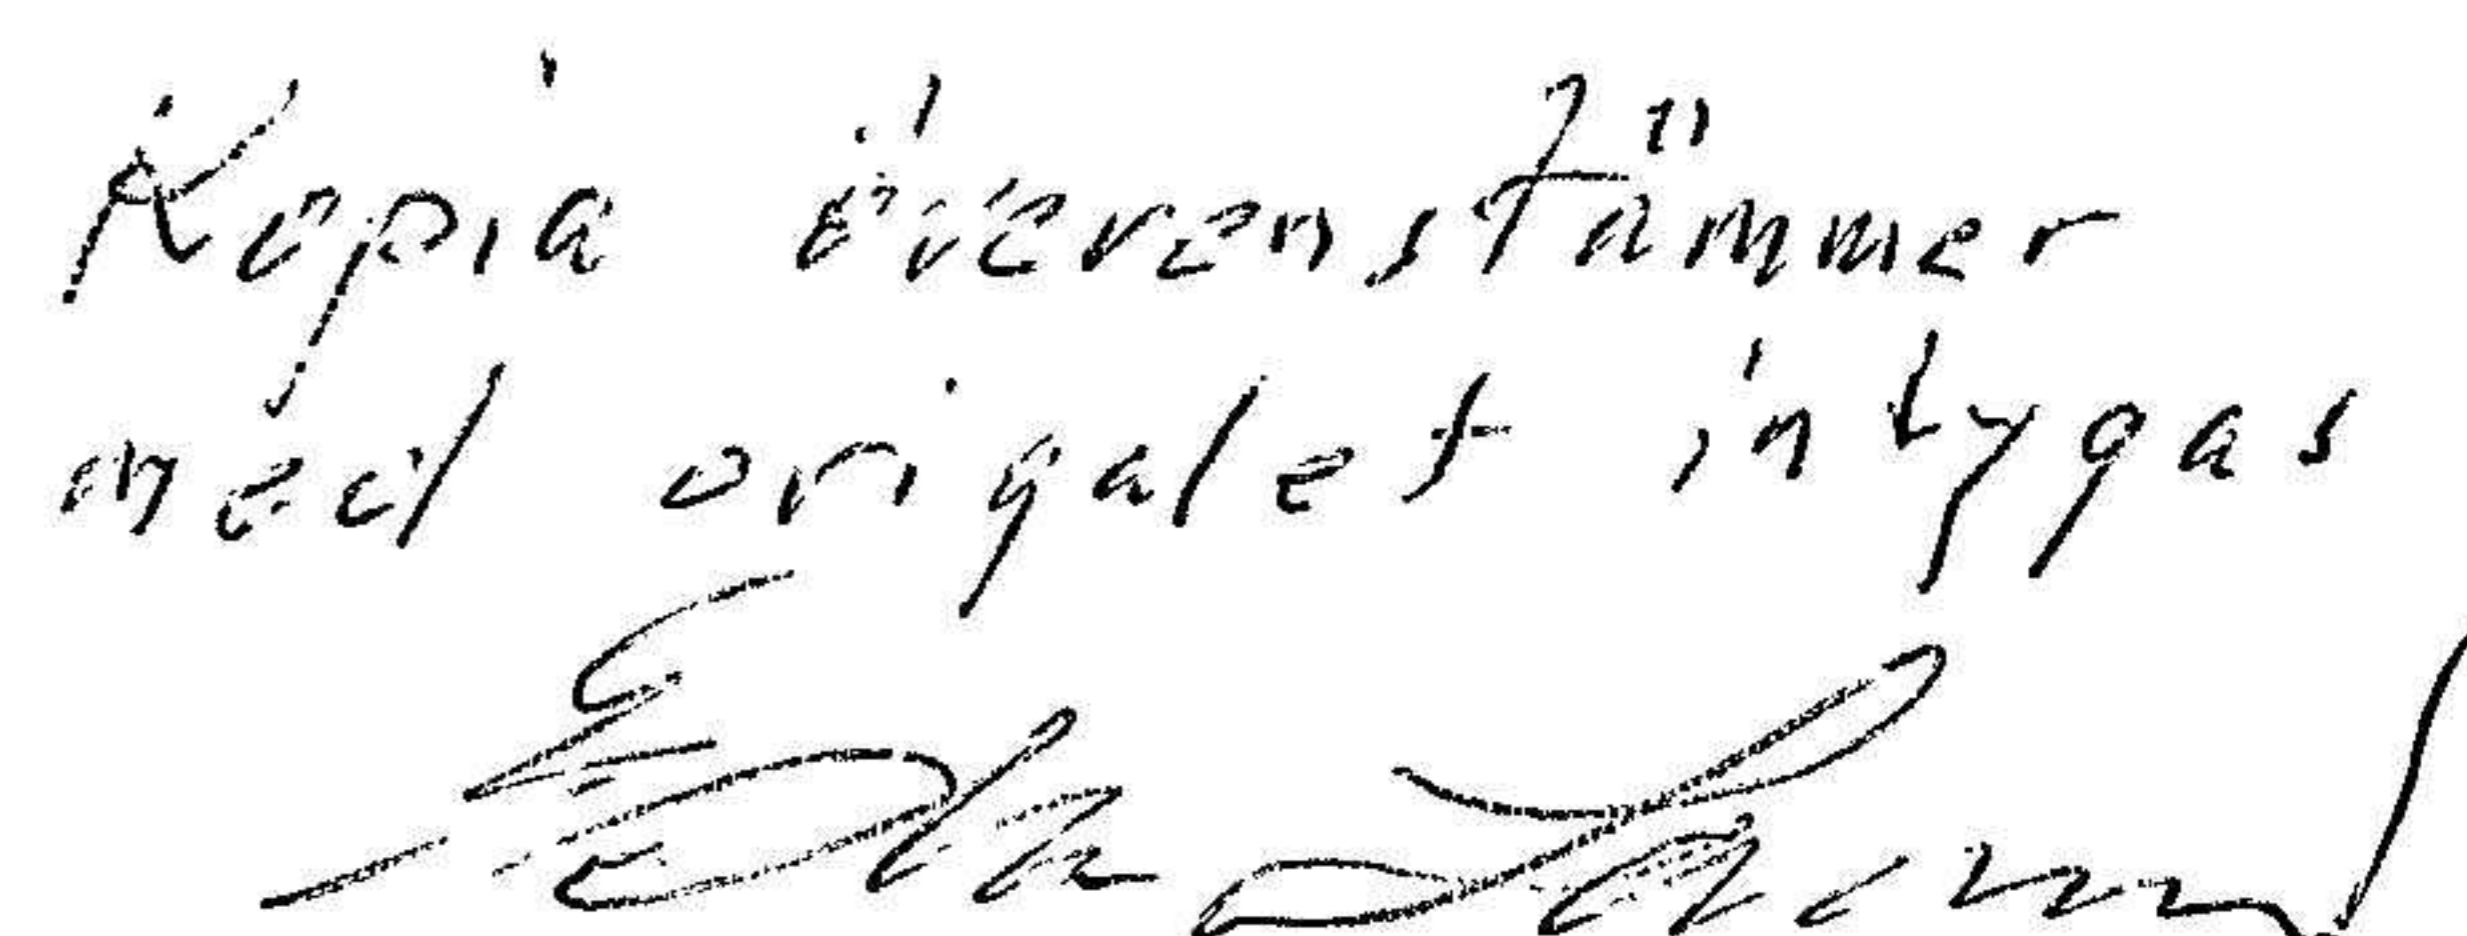 Kopia överenstämmer
med origalet intygas